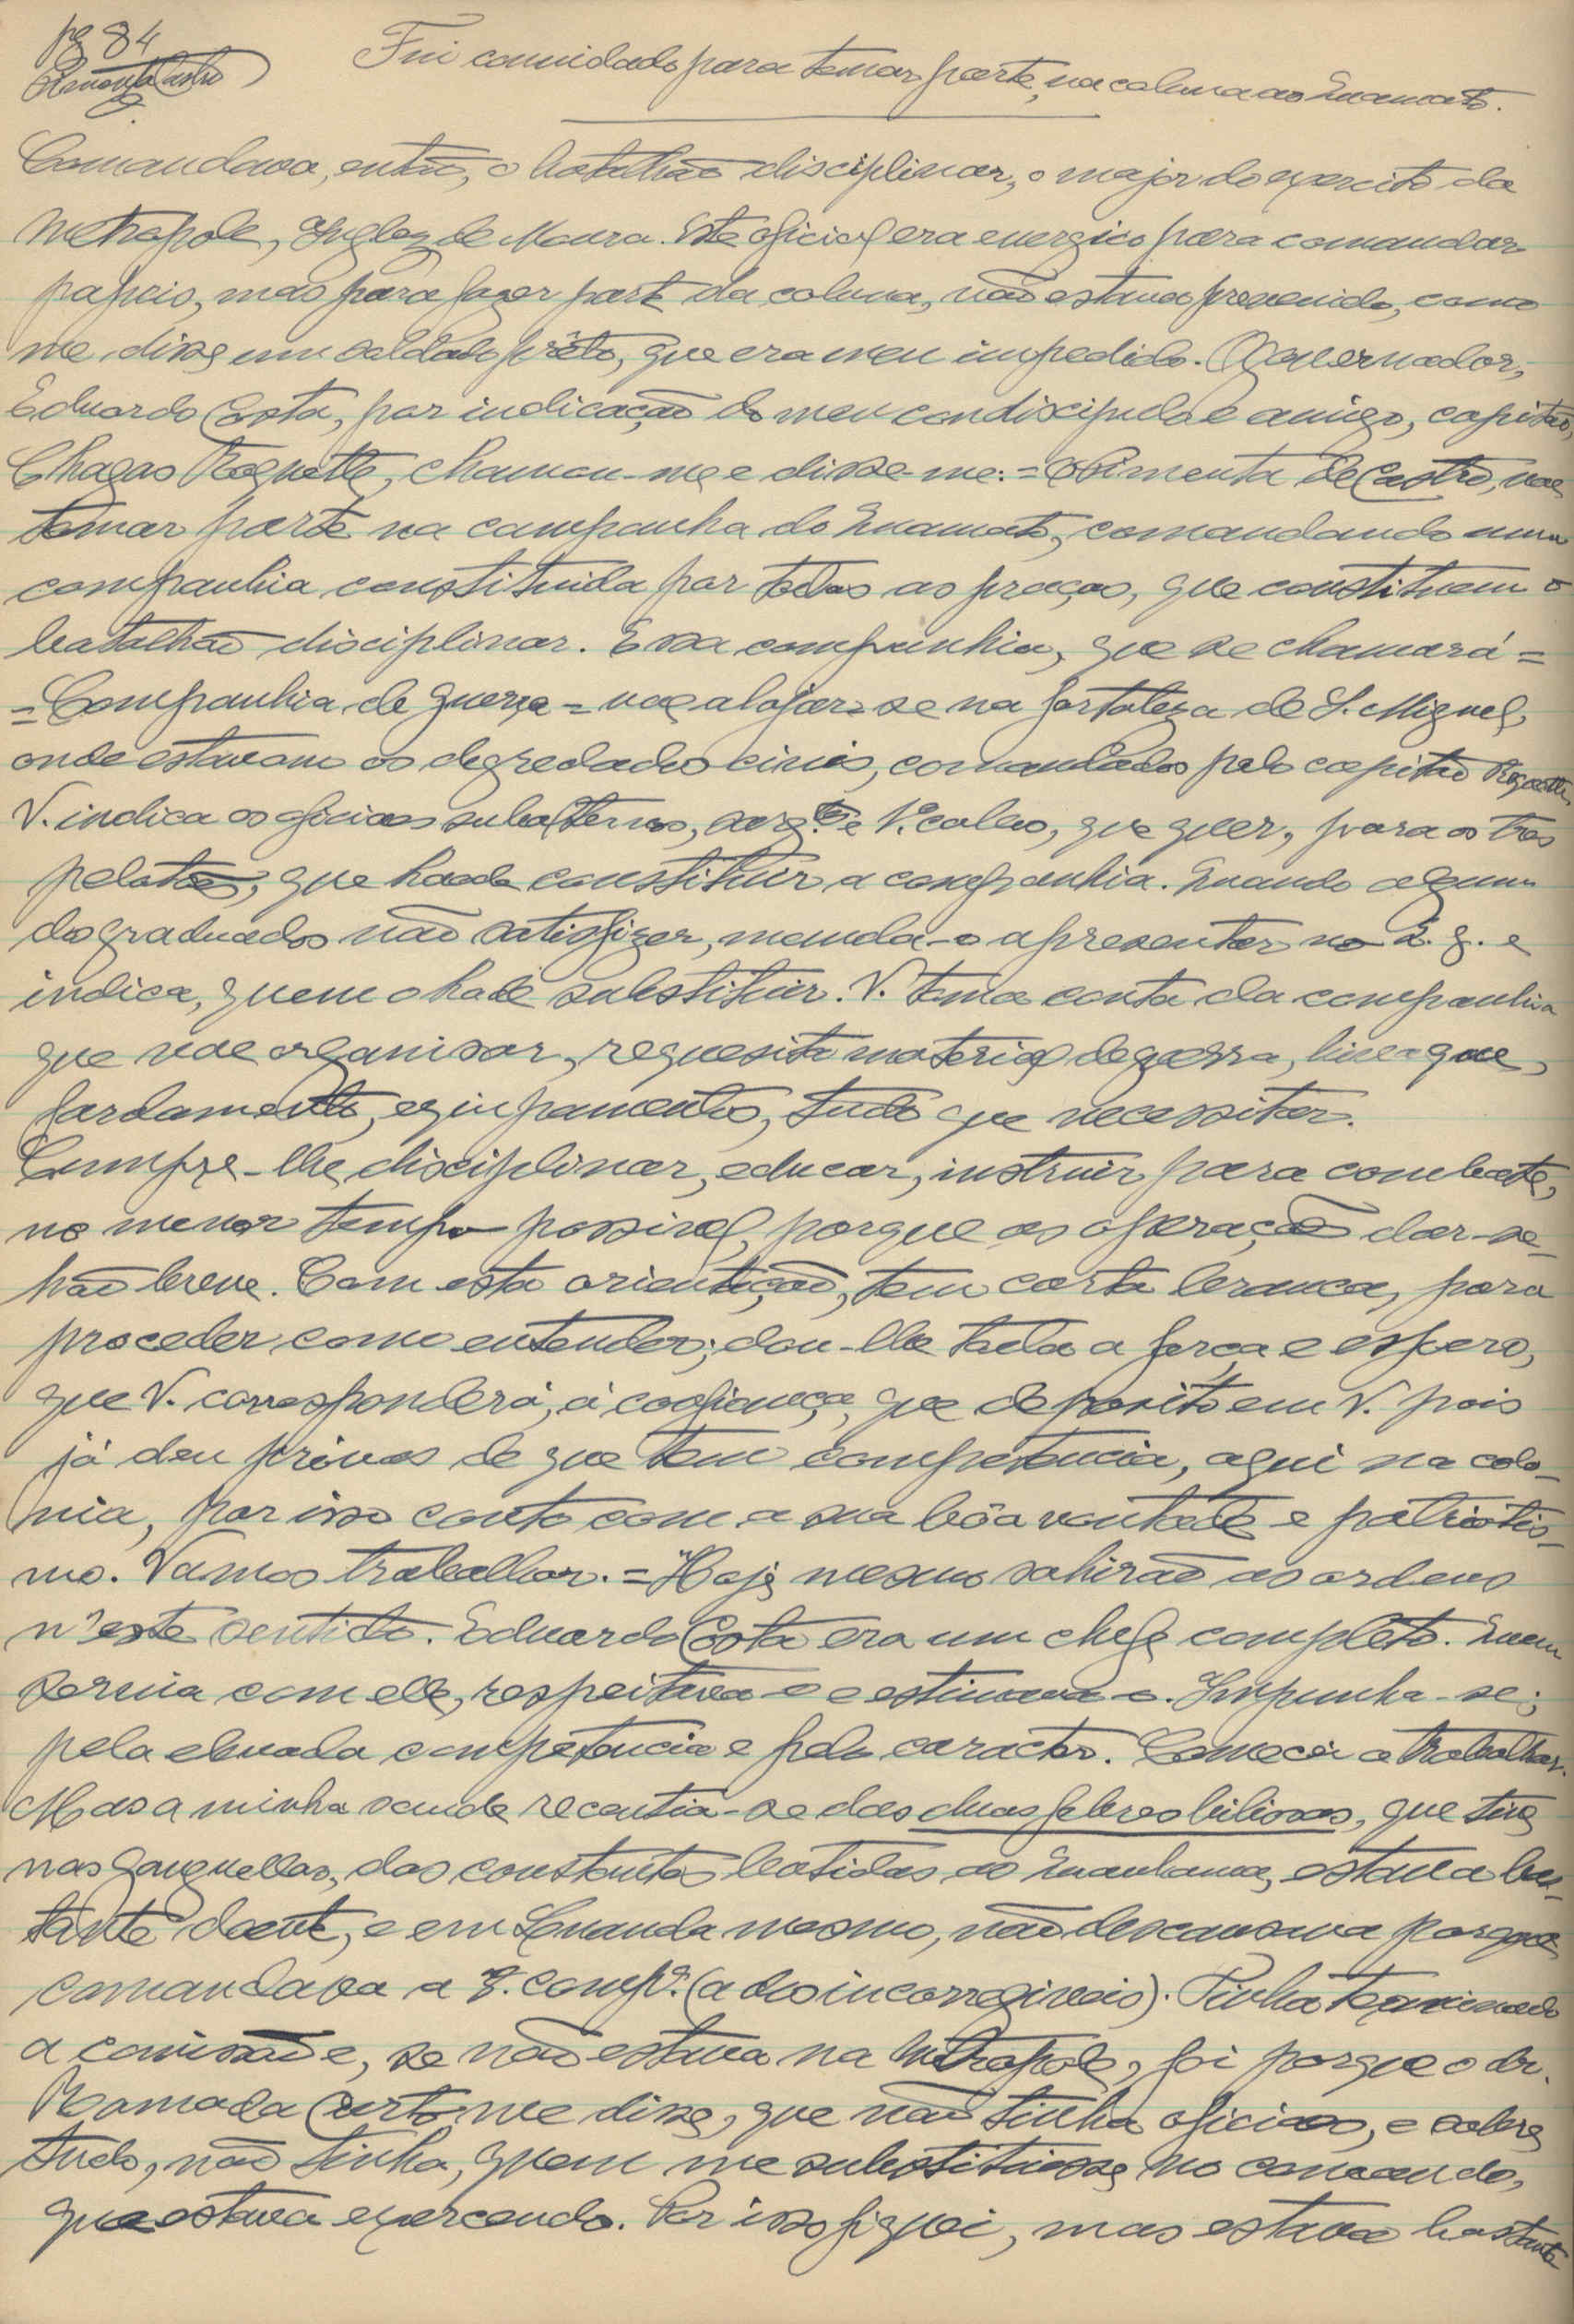 pg 84
Pimenta Castro
Fui convidado para tomar parte, na coluna ao Cuamato.
Comandava, então, o batalhão disciplinar, o major do exercito da
metropole, Inglez de Moura. Este oficial era energico para comandar
papeis, mas para fazer parte da coluna, não estava prevenido, como
me disse um soldado prêto, que era meu impedido. O governador,
Eduardo Costa, por indicação do meu condiscipulo e amigo, capitão,
Chagas Roquette, chamou-me e disse-me: = O Pimenta de Castro, vae
tomar parte na campanha do Cuamato, comandando uma
companhia constituida por todas as praças, que constituem o
batalhão disciplinar. Essa companhia, que se chamará =
= Companhia de guerra = vae alojar-se na fortaleza de S. Miguel,
onde estavam os degredados civis, comandados pelo capitão Roquette.
V. indica os oficiaes subalternos, sarg.tos e 1.os cabos, que quer, para os tres
pelotões, que hãode constituir a companhia. Quando algum
dos graduados não satisfizer, manda-o apresentar no Q. g. e
indica, quem o hade substituir. V. toma conta da companhia
que vae organisar, requesita material de guerra, lineague,
fardamento, equipamento, tudo que necessitar.
Cumpre-lhe, disciplinar, educar, instruir para combate,
no menor tempo possivel, porque as operações dar-se-
hão breve. Com esta orientação, tem carta branca, para
proceder como entender; dou-lhe toda a força e espero,
que V. corresponderá, á confiança, que deposito em V. pois
já deu provas de que tem competencia, aqui na colo-
nia, por isso conto com a sua bôa vontade e patriotis-
mo. Vamos trabalhar. = Hoje mesmo sahirão as ordens
n'este sentido. Eduardo Costa era um chefe completo. Quem
servia com elle, respeitava-o e estimava-o. Impunha-se;
pela elevada competencia e pelo caracter. Comecei a trabalhar.
Mas a minha saude recentia-se das duas febres biliosas, que tive
nas Ganguellas, das constantes batidas ao Cuanhama, estava bas-
tante doente, e em Luanda mesmo, não descansava porque
comandava a 3. comp.ª (a dos incorregiveis). Tinha terminado
a comissão e, se não estava na metropole, foi porque o dr.
Ramada Curto me disse, que não tinha oficiaes, e sobre
tudo, não tinha, quem me substituisse no comando,
que estava exercendo. Por isso fiquei, mas estava bastante